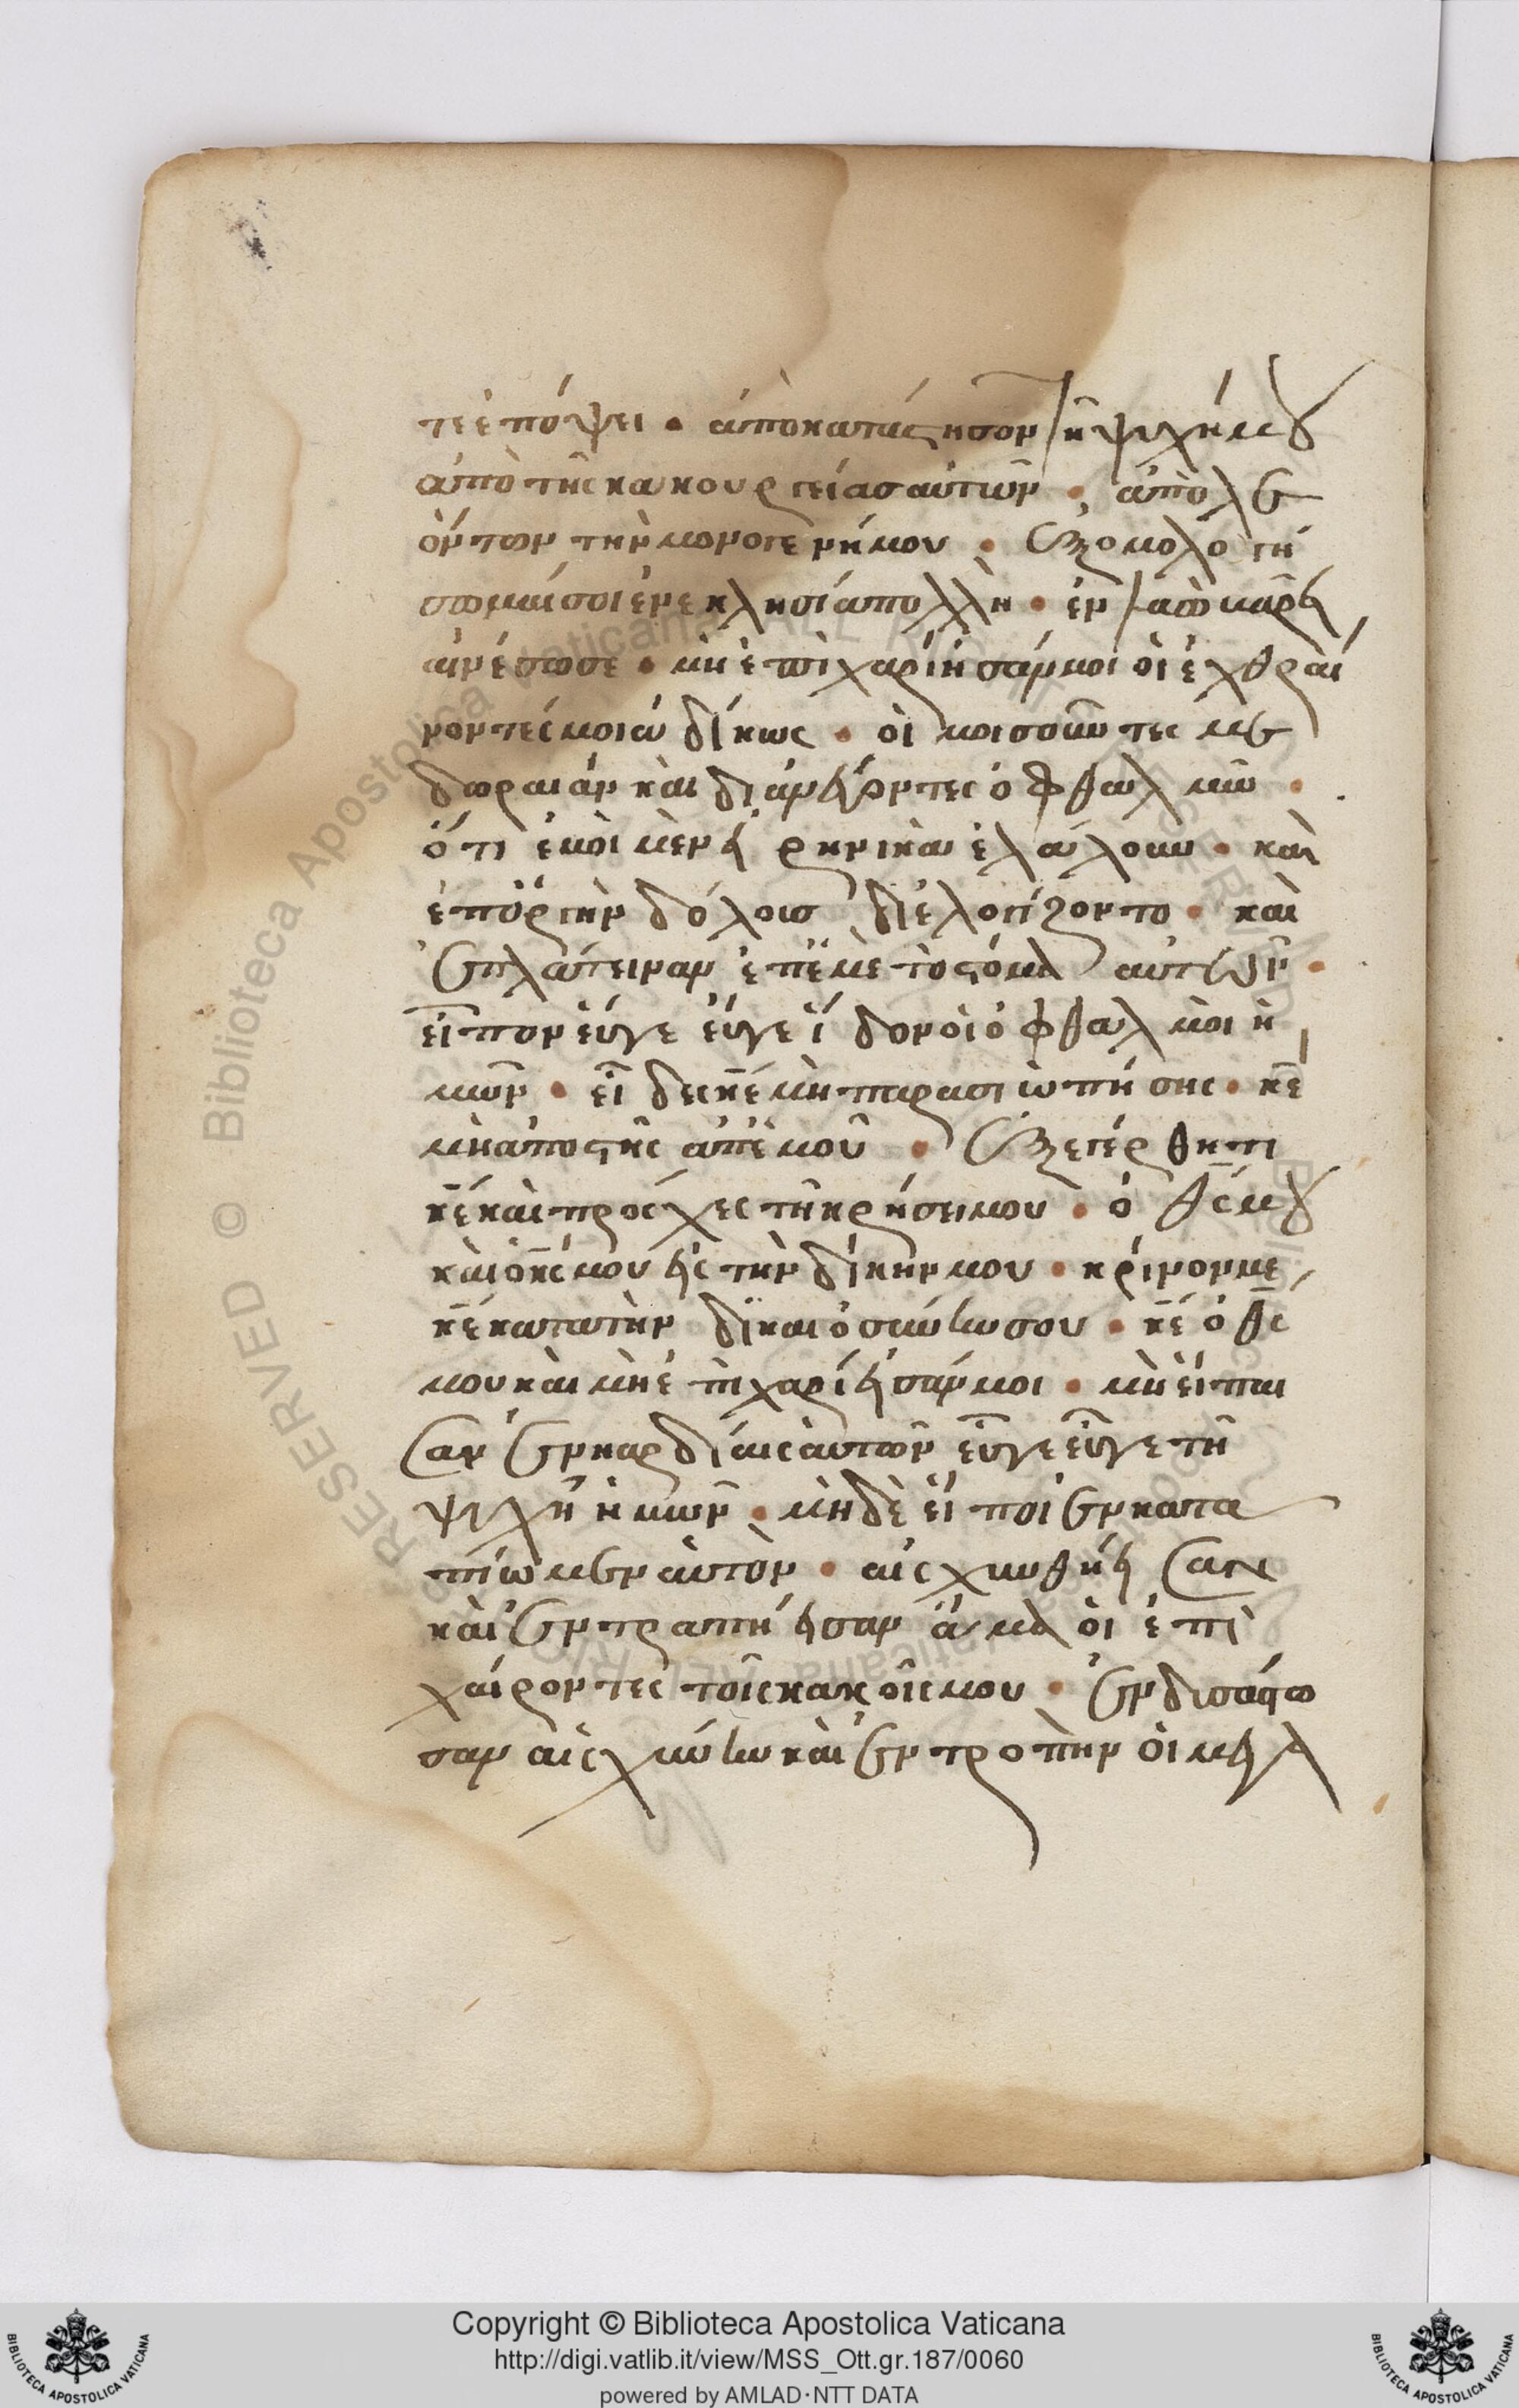 τε ἐπόψει · ἀποκατάστησον τὴ ψυχή μου
ἀπὸ τῆς κακουργείασ αὐτῶν · ἀπὸ λε
όντων τὴν μονογενή μου · ἐξομολογή
σωμαί σοι ἐν ἐκλησία πολλῆ · ἐν λαῶ βαρεῖ
αἰνέσωσε · μὴ ἐπιχαρίησάν μοι οἱ ἐχθραί
νοντές μοι ἀδίκως · οἱ μοισούντες με
δωραιὰν καὶ διανεύοντες ὀφθαλμῶ ·
ὅτι ἐμοὶ μὲν εἰρηνικὰ ἐλάλουν · καὶ
ἐπ' ὀργὴν δόλοισ διελογίζοντο · καὶ
ἐπλάτειναν ἐπ' ἐμὲ τὸ στόμα αὐτῶν ·
εἶπον εὖγε εὖγε ἴδον οἱ ὀφθαλμοὶ ἡ
μῶν · εἶδες κε μὴ παρασιωπήσης · κε
μὴ ἀποστῆς ἀπ' ἐμοῦ · ἐξεγέρθητι
κε καὶ πρόσχες τῆ κρήσει μου · ὁ θς μου
καὶ ὁ κς μου εἰς τὴν δίκην μου · κρίνον με
κε κατὰ τὴν δικαιοσύνην σου · κε ὁ θς
μου καὶ μὴ ἐπιχαρίεισάν μοι · μὴ εἴπαι
σαν ἐν καρδίαις αὐτῶν εὖγε εὖγε τῆ
ψυχῆ ἡμῶν · μηδὲ εἴποιεν κατα
πίωμεν αὐτὸν · αἰσχυνθήεισαν
καὶ ἐντραπήεισαν ἅμα οἱ ἐπι
χαίροντες τοῖς κακοῖς μου · ἐνδισάσθω
σαν αἰσχύνην καὶ ἐντροπὴν οἱ μεγα
Copyright © Biblioteca Apostolica Vaticana
http://digi.vatlib.it/view/MSS_Ott.gr.187/0060
powered by AMLAD·NTT DATA